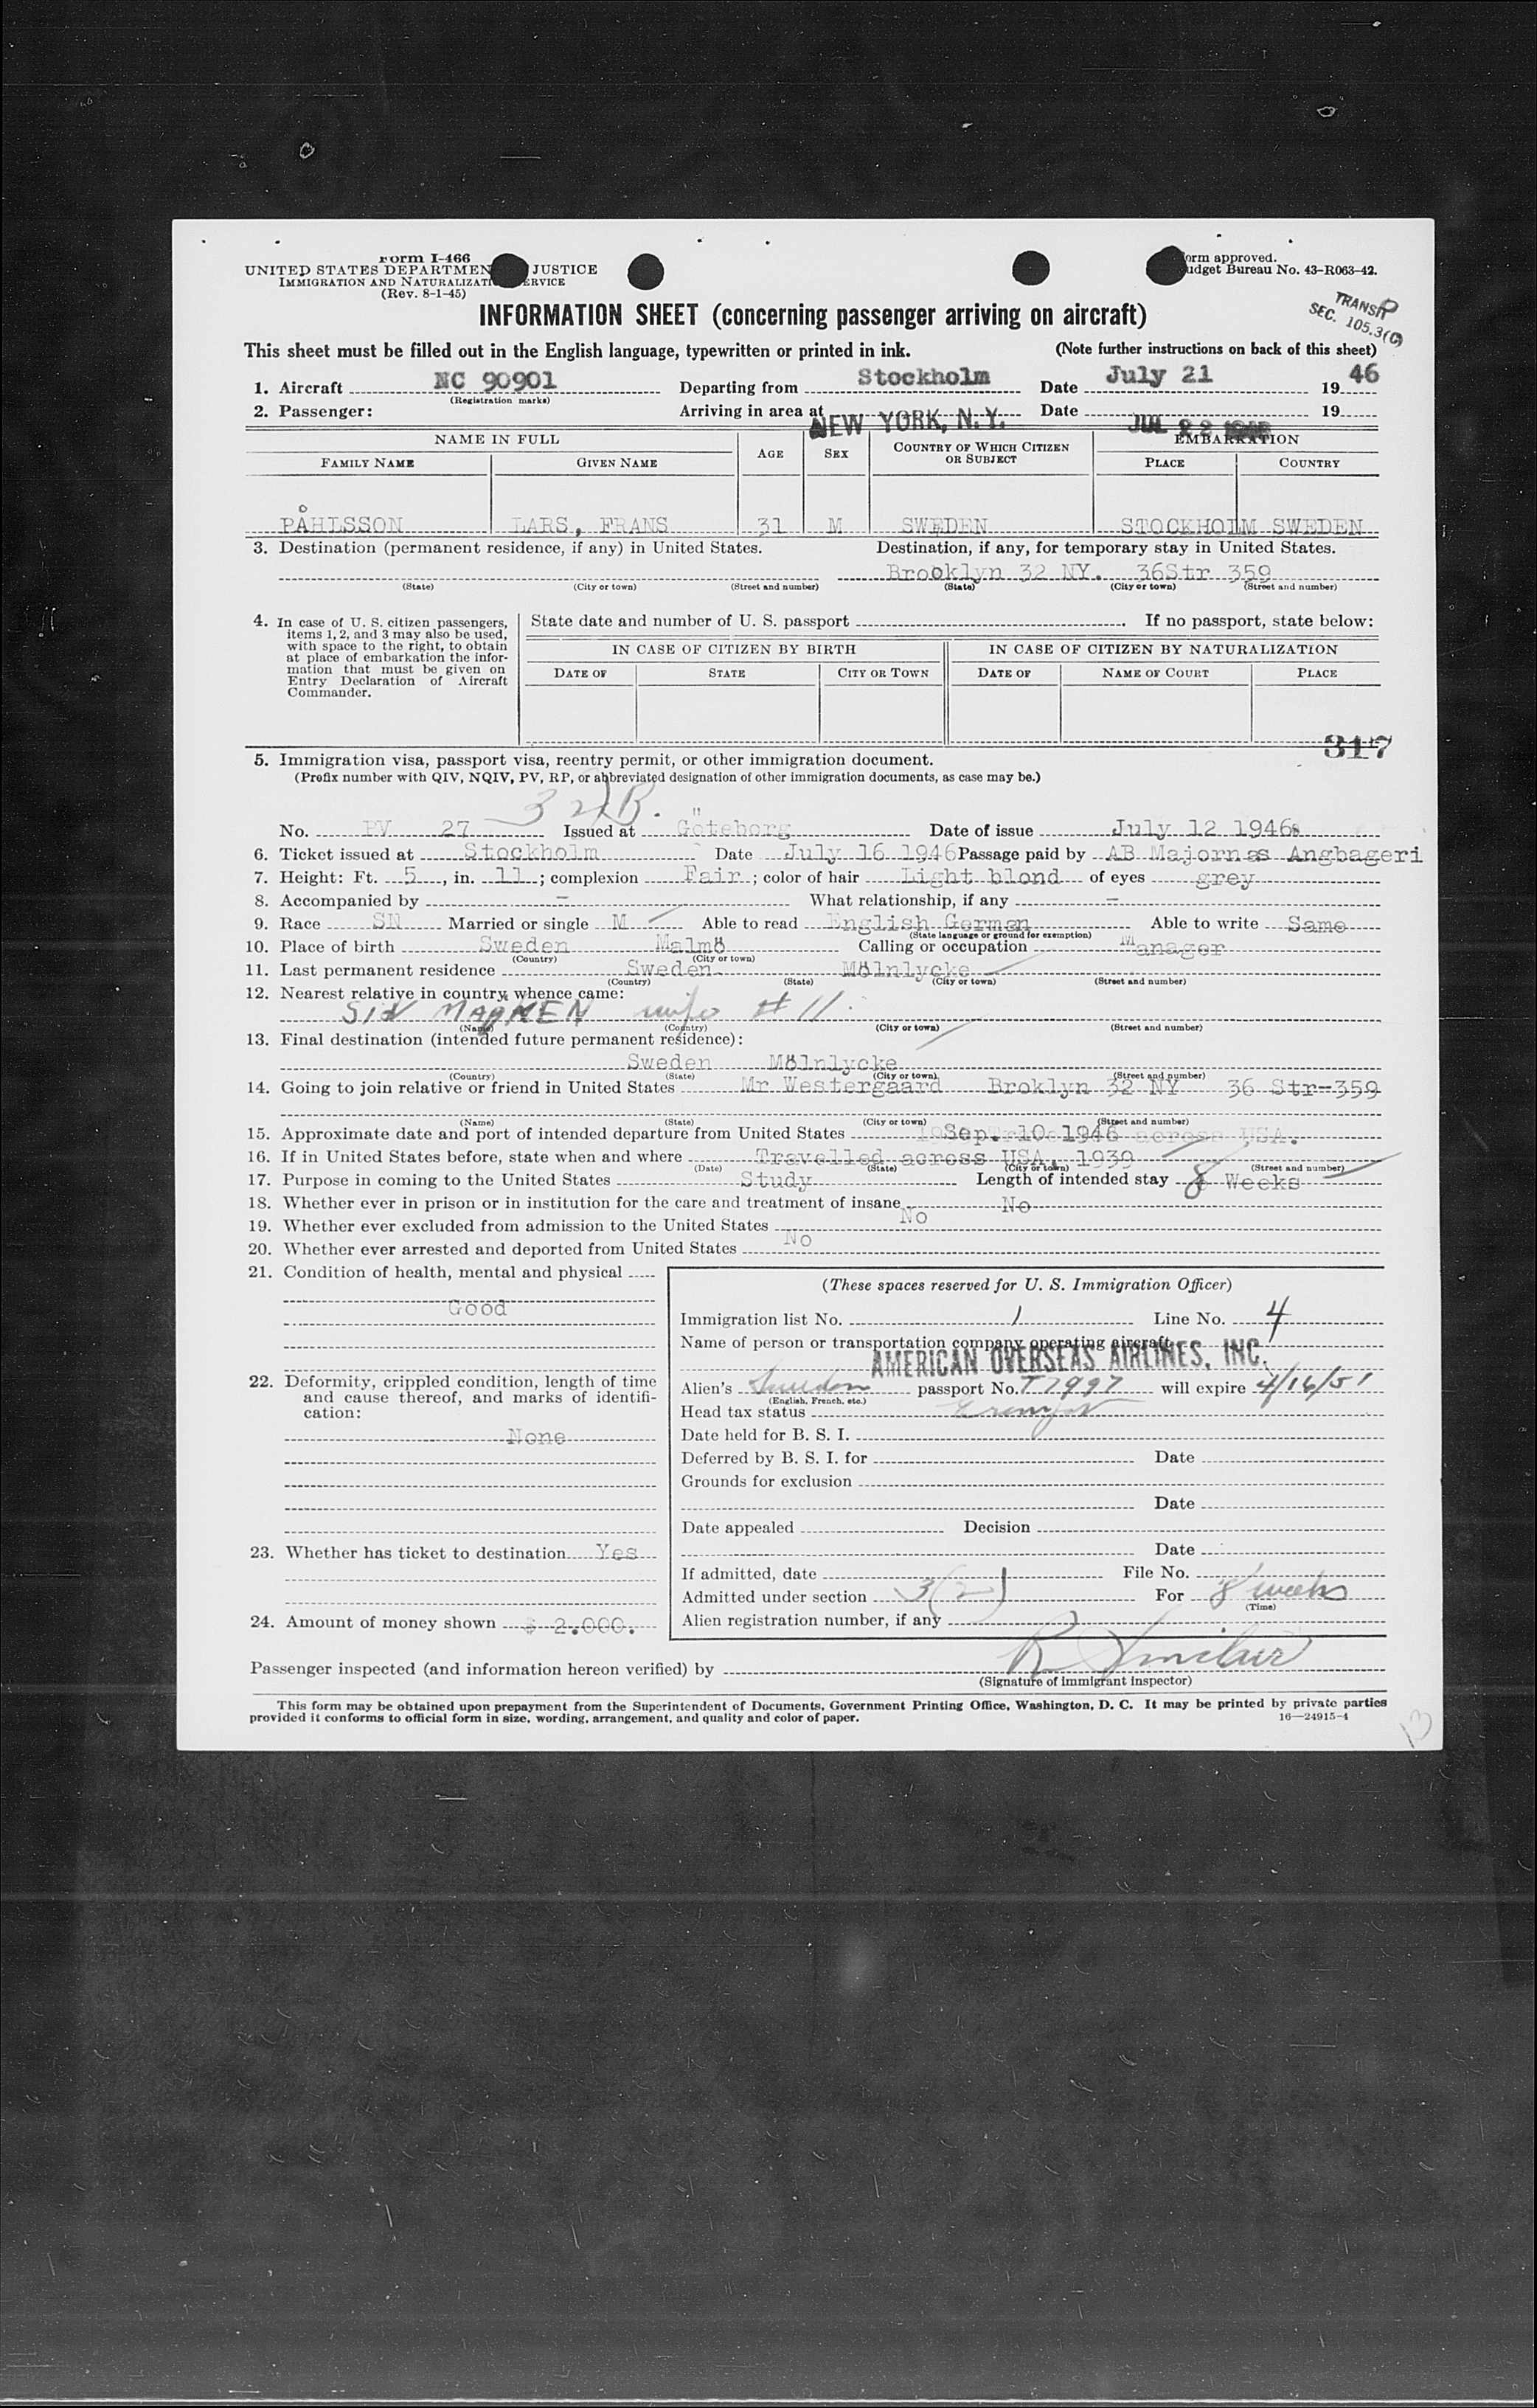 Form I-466
UNITED STATES DEPARTMENT JUSTICE
IMMIGRATION AND NATURALIZATION SERVICE
(Rev. 8-1-45)
Form approved.
Budget Bureau No. 43-R063-42.
INFORMATION SHEET (concerning passenger arriving on aircraft)
TRANSIT
SEC. 105.3(C)
This sheet must be filled out in the English language, typewritten or printed in ink. (Note further instructions on back of this sheet)
1. Aircraft NC 90901 Departing from Stockholm Date July 21 1946
(Registration marks)
2. Passenger: Arriving in area at NEW YORK, N.Y. Date JUL 22 1946 19
NAME IN FULL AGE SEX COUNTRY OF WHICH CITIZEN OR SUBJECT EMBARKATION
FAMILY NAME GIVEN NAME PLACE COUNTRY
PÅHLSSON LARS, FRANS 31 M SWEDEN STOCKHOLM SWEDEN
3. Destination (permanent residence, if any) in United States. Destination, if any, for temporary stay in United States.
Brooklyn 32 NY. 36Str 359
(State) (City or town) (Street and number) (State) (City or town) (Street and number)
4. In case of U. S. citizen passengers, items 1, 2, and 3 may also be used, with space to the right, to obtain at place of embarkation the information that must be given on Entry Declaration of Aircraft Commander.
State date and number of U. S. passport If no passport, state below:
IN CASE OF CITIZEN BY BIRTH IN CASE OF CITIZEN BY NATURALIZATION
DATE OF STATE CITY OR TOWN DATE OF NAME OF COURT PLACE
317
5. Immigration visa, passport visa, reentry permit, or other immigration document.
(Prefix number with QIV, NQIV, PV, RP, or abbreviated designation of other immigration documents, as case may be.)
No. PV 27 Issued at Göteborg Date of issue July 12 1946
6. Ticket issued at Stockholm Date July 16 1946 Passage paid by AB Majornas Angbageri
7. Height: Ft. 5, in. 11; complexion Fair; color of hair Light blond of eyes grey
8. Accompanied by - What relationship, if any -
9. Race SN Married or single M Able to read English German Able to write Same
(State language or ground for exemption)
10. Place of birth Sweden Malmö Calling or occupation Manager
(Country) (City or town)
11. Last permanent residence Sweden Mölnlycke
(Country) (State) (City or town) (Street and number)
12. Nearest relative in country whence came:
wife # 11.
(Name) (Country) (City or town) (Street and number)
13. Final destination (intended future permanent residence):
Sweden Mölnlycke
(Country) (State) (City or town) (Street and number)
14. Going to join relative or friend in United States Mr Westergaard Broklyn 32 NY 36 Str-359
(Name) (State) (City or town) (Street and number)
15. Approximate date and port of intended departure from United States Sep. 10 1946
16. If in United States before, state when and where Travelled across USA, 1939
(Date) (State) (City or town) (Street and number)
17. Purpose in coming to the United States Study Length of intended stay 8 Weeks
18. Whether ever in prison or in institution for the care and treatment of insane No
19. Whether ever excluded from admission to the United States No
20. Whether ever arrested and deported from United States No
21. Condition of health, mental and physical
Good
22. Deformity, crippled condition, length of time and cause thereof, and marks of identification:
None
23. Whether has ticket to destination Yes
24. Amount of money shown $ 2.000.
(These spaces reserved for U. S. Immigration Officer)
Immigration list No. 1 Line No. 4
Name of person or transportation company operating aircraft
AMERICAN OVERSEAS AIRLINES, INC.
Alien's Sweden passport No. T7997 will expire 4/16/51
(English, French, etc.)
Head tax status Exempt
Date held for B. S. I.
Deferred by B. S. I. for Date
Grounds for exclusion
Date
Date appealed Decision
Date
If admitted, date File No.
Admitted under section 3(2) For 8 weeks
(Time)
Alien registration number, if any
Passenger inspected (and information hereon verified) by R Sinclair
(Signature of immigrant inspector)
This form may be obtained upon prepayment from the Superintendent of Documents, Government Printing Office, Washington, D. C. It may be printed by private parties
provided it conforms to official form in size, wording, arrangement, and quality and color of paper. 16—24915-4
13